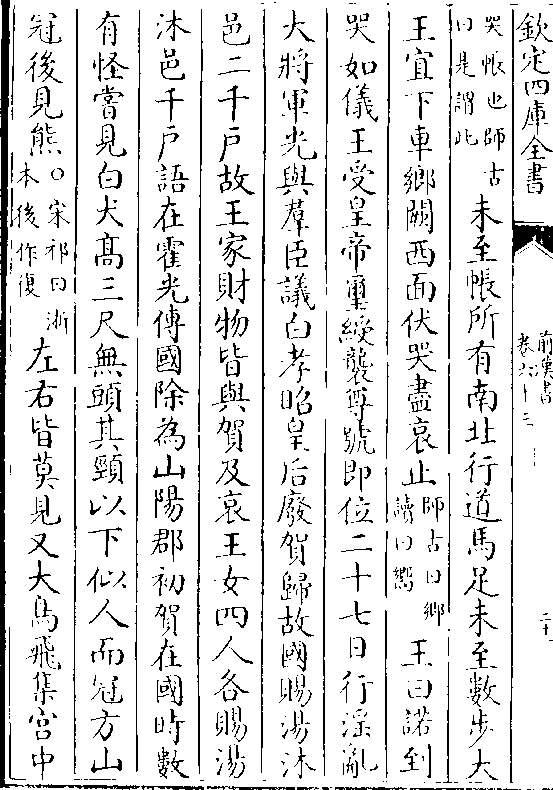 欽定四庫全書
前漢書
卷六十三
二十
哭帳也師古
曰是謂此
未至帳所有南北行道馬足未至數步大
王宜下車鄉闕西面伏哭盡哀止
師古曰鄉
讀曰嚮
王曰諾到
哭如儀王受皇帝璽綬襲尊號即位二十七日行淫亂
大將軍光與羣臣議白孝昭皇后廢賀歸故國賜湯沐
邑二千戶故王家財物皆與賀及哀王女四人各賜湯
沐邑千戶語在霍光傳國除為山陽郡初賀在國時數
有怪嘗見白犬高三尺無頭其頸以下似人而冠方山
冠後見熊
○宋祁曰浙
本後作復
左右皆莫見又大鳥飛集宫中